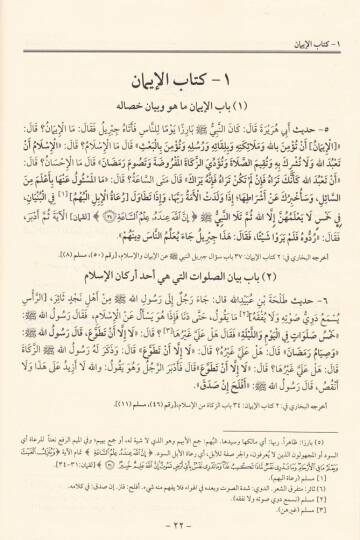 ١- كتاب الإيمان
١- كتاب الإيمان
(١) باب الإيمان ما هو وبيان خصاله
٥- حديث أَبِي هُرَيْرَةَ قَالَ: كَانَ النَّبِيُّ ﷺ بَارِزًا يَوْمًا لِلنَّاسِ فَأَتَاهُ جِبْرِيلُ فَقَالَ: مَا الْإِيمَانُ؟ قَالَ:
«[الْإِيمَانُ] أَنْ تُؤْمِنَ بِاللهِ وَمَلَائِكَتِهِ وَبِلِقَائِهِ وَرُسُلِهِ وَتُؤْمِنَ بِالْبَعْثِ» قَالَ: مَا الْإِسْلَامُ؟ قَالَ: «الْإِسْلَامُ أَنْ
تَعْبُدَ اللهَ وَلَا تُشْرِكَ بِهِ وَتُقِيمَ الصَّلَاةَ وَتُؤَدِّيَ الزَّكَاةَ الْمَفْرُوضَةَ وَتَصُومَ رَمَضَانَ» قَالَ: مَا الْإِحْسَانُ؟ قَالَ:
«أَنْ تَعْبُدَ اللهَ كَأَنَّكَ تَرَاهُ فَإِنْ لَمْ تَكُنْ تَرَاهُ فَإِنَّهُ يَرَاكَ» قَالَ: مَتَى السَّاعَةُ؟ قَالَ: «مَا الْمَسْئُولُ عَنْهَا بِأَعْلَمَ مِنَ
السَّائِلِ، وَسَأُخْبِرُكَ عَنْ أَشْرَاطِهَا: إِذَا وَلَدَتْ الْأَمَةُ رَبَّهَا، وَإِذَا تَطَاوَلَ [رُعَاةُ الْإِبِلِ الْبُهْمُ][١] فِي الْبُنْيَانِ،
فِي خَمْسٍ لَا يَعْلَمُهُنَّ إِلَّا اللهُ» ثُمَّ تَلَا النَّبِيُّ ﷺ ﴿إِنَّ اللَّهَ عِندَهُ عِلْمُ السَّاعَةِ﴾ الْآيَةَ ثُمَّ أَدْبَرَ،
فَقَالَ: «رُدُّوهُ» فَلَمْ يَرَوْا شَيْئًا، فَقَالَ: «هَذَا جِبْرِيلُ جَاءَ يُعَلِّمُ النَّاسَ دِينَهُمْ».
أخرجه البخاري في: ٢ كتاب الإيمان: ٣٧ باب سؤال جبريل النبي ﷺ عن الإيمان والإسلام، (رقم (٥٠)، مسلم (٨)].
(٢) باب بيان الصلوات التي هي أحد أركان الإسلام
٦- حديث طَلْحَةَ بْنِ عُبَيْدِاللهِ قَالَ: جَاءَ رَجُلٌ إِلَى رَسُولِ اللهِ ﷺ مِنْ أَهْلِ نَجْدٍ ثَائِرَ، [الرَّأْسِ
يُسْمَعُ دَوِيُّ صَوْتِهِ وَلَا يُفْقَهُ][٢] مَا يَقُولُ، حَتَّى دَنَا فَإِذَا هُوَ يَسْأَلُ عَنْ الْإِسْلَامِ، فَقَالَ رَسُولُ اللهِ ﷺ:
«خَمْسُ صَلَوَاتٍ فِي الْيَوْمِ وَاللَّيْلَةِ» فَقَالَ: هَلْ عَلَيَّ غَيْرُهَا[٣]؟ قَالَ: «لَا إِلَّا أَنْ تَطَوَّعَ»، قَالَ رَسُولُ اللهِ ﷺ:
«وَصِيَامُ رَمَضَانَ» قَالَ: هَلْ عَلَيَّ غَيْرُهُ؟ قَالَ: «لَا إِلَّا أَنْ تَطَوَّعَ» قَالَ: وَذَكَرَ لَهُ رَسُولُ اللهِ ﷺ الزَّكَاةَ
قَالَ: هَلْ عَلَيَّ غَيْرُهَا؟ قَالَ: «لَا إِلَّا أَنْ تَطَوَّعَ» قَالَ: فَأَدْبَرَ الرَّجُلُ وَهُوَ يَقُولُ: وَاللهِ لَا أَزِيدُ عَلَى هَذَا وَلَا
أَنْقُصُ، قَالَ رَسُولُ اللهِ ﷺ: «أَفْلَحَ إِنْ صَدَقَ».
أخرجه البخاري في: ٢ كتاب الإيمان: ٣٤ باب الزكاة من الإسلام، [رقم (٤٦)، مسلم (١١)].
(٥) بارزا: ظاهراً. ربها: أي مالكها وسيدها. البُهْم: جمع الأبهم وهو الذي لا شية له،
[١] مسلم (رعاة البهم).
(٦) ثائر: متفرق الشعر. الدوي: شدة الصوت وبعده في الهواء فلا يفهم منه شيء. أفلح: فاز. إن صدق: في كلامه.
[٢] مسلم (نسمع دوي صوته ولا نفقه).
[٣] مسلم (غيرهن).
- ٢٢ -